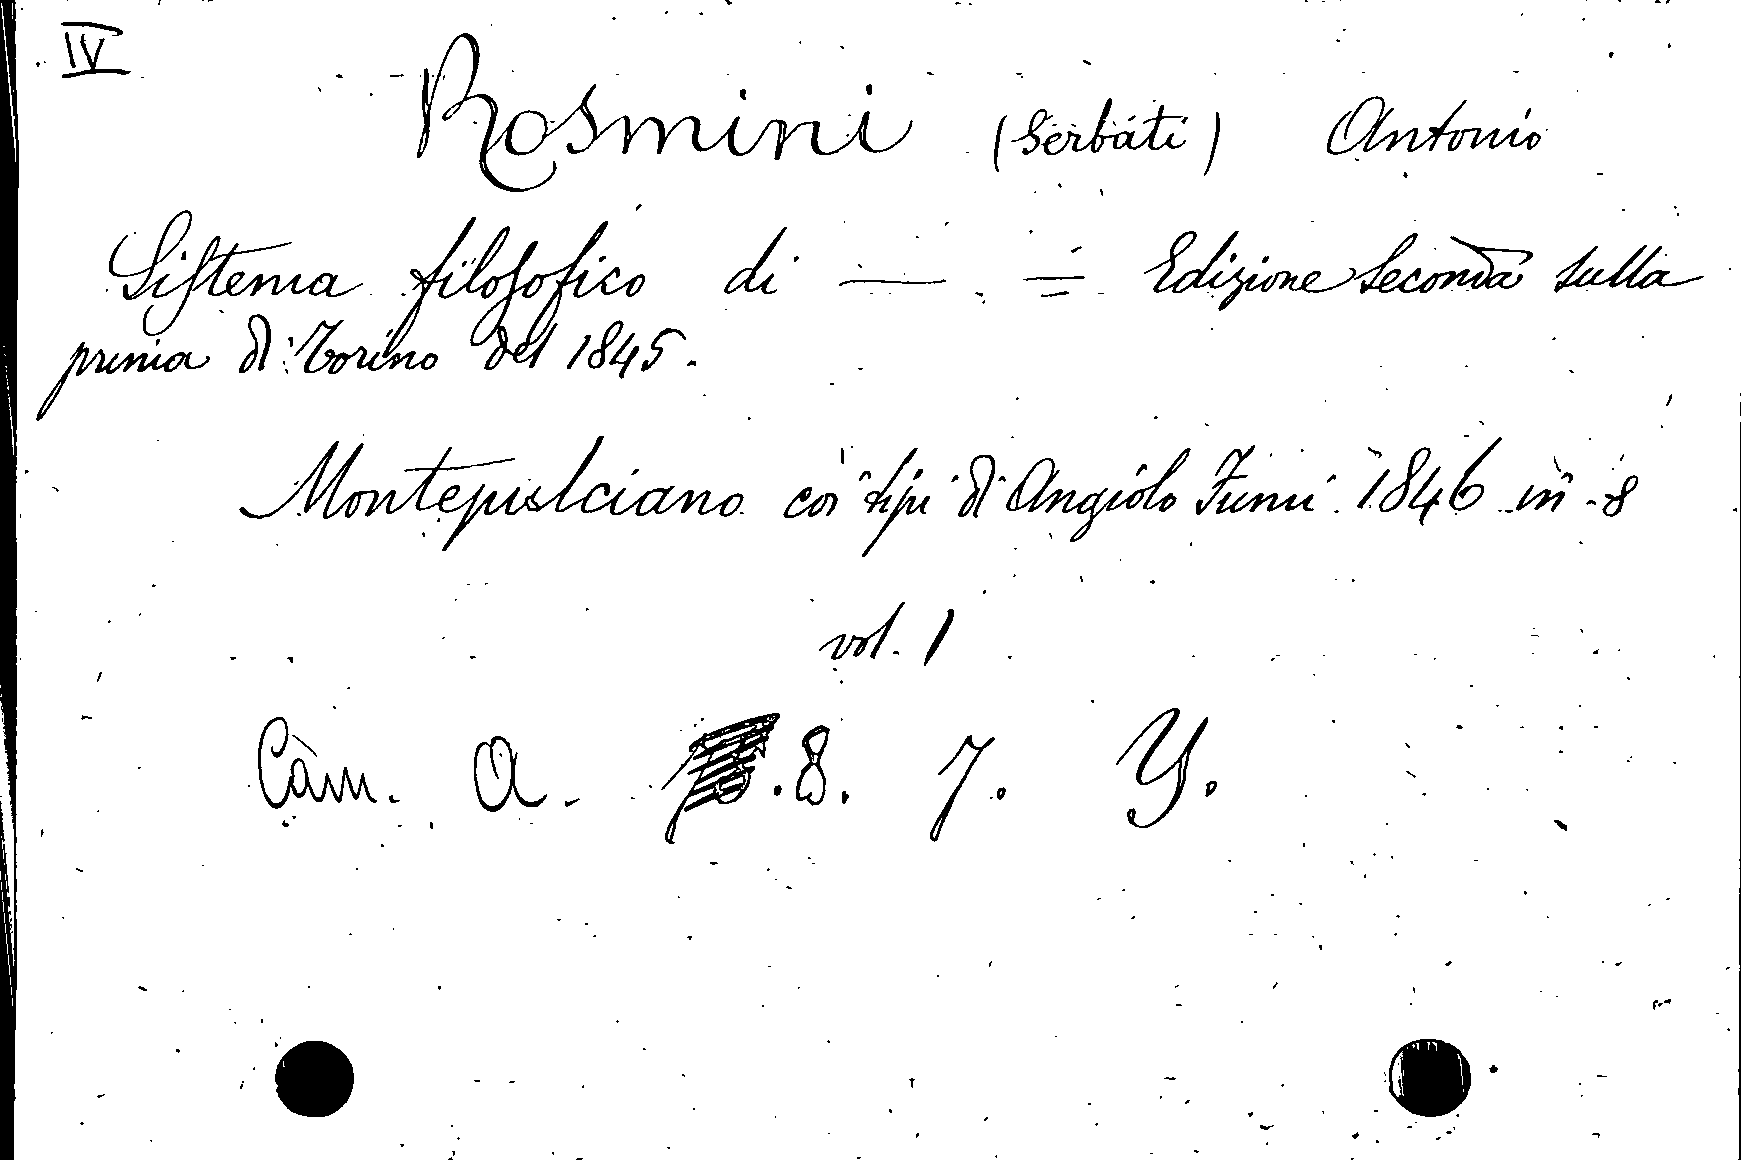 IV
Rosmini (Serbati) Antonio
Sistema filosofico di — = Edizione seconda sulla
prima di Torino del 1845.
Montepulciano coi tipi di Angiolo Fumi 1846 in-8
vol. 1
Cam. A. .8. 7. Y.